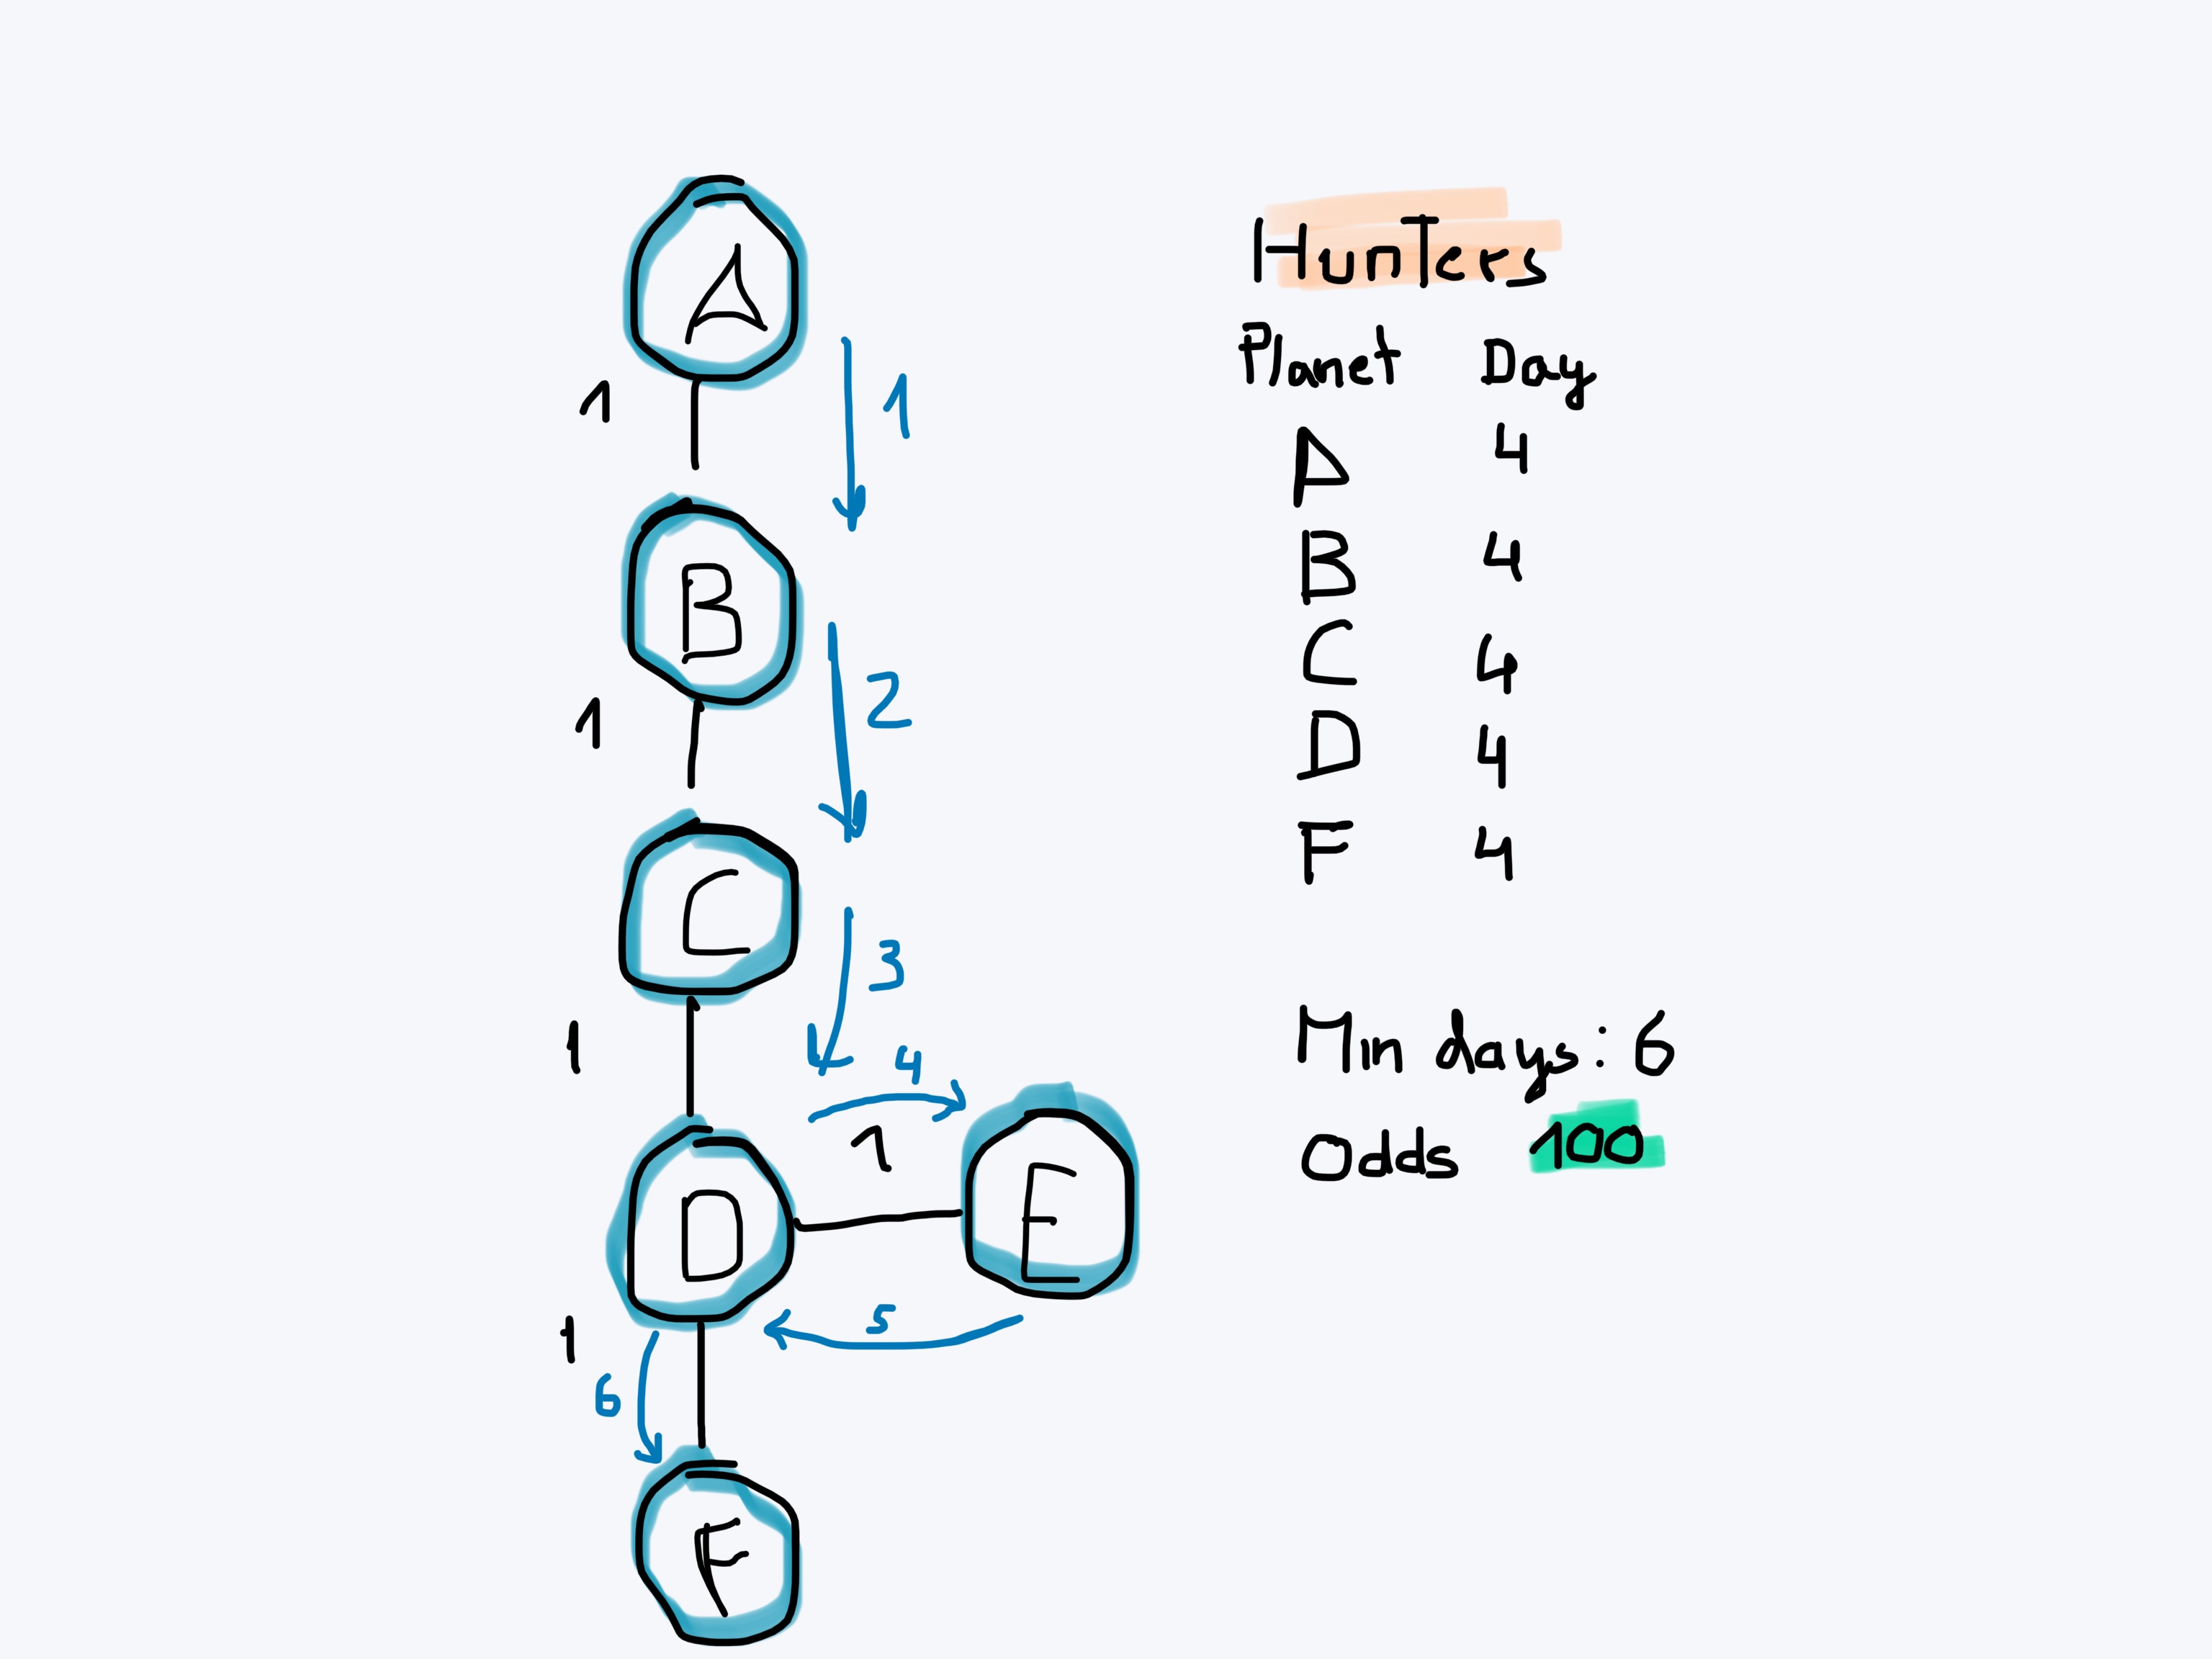 A
1
1
B
1
2
C
3
1
4
1
D
E
5
1
6
F
Hunters
Planet Day
A 4
B 4
C 4
D 4
F 4
Min days: 6
Odds 100